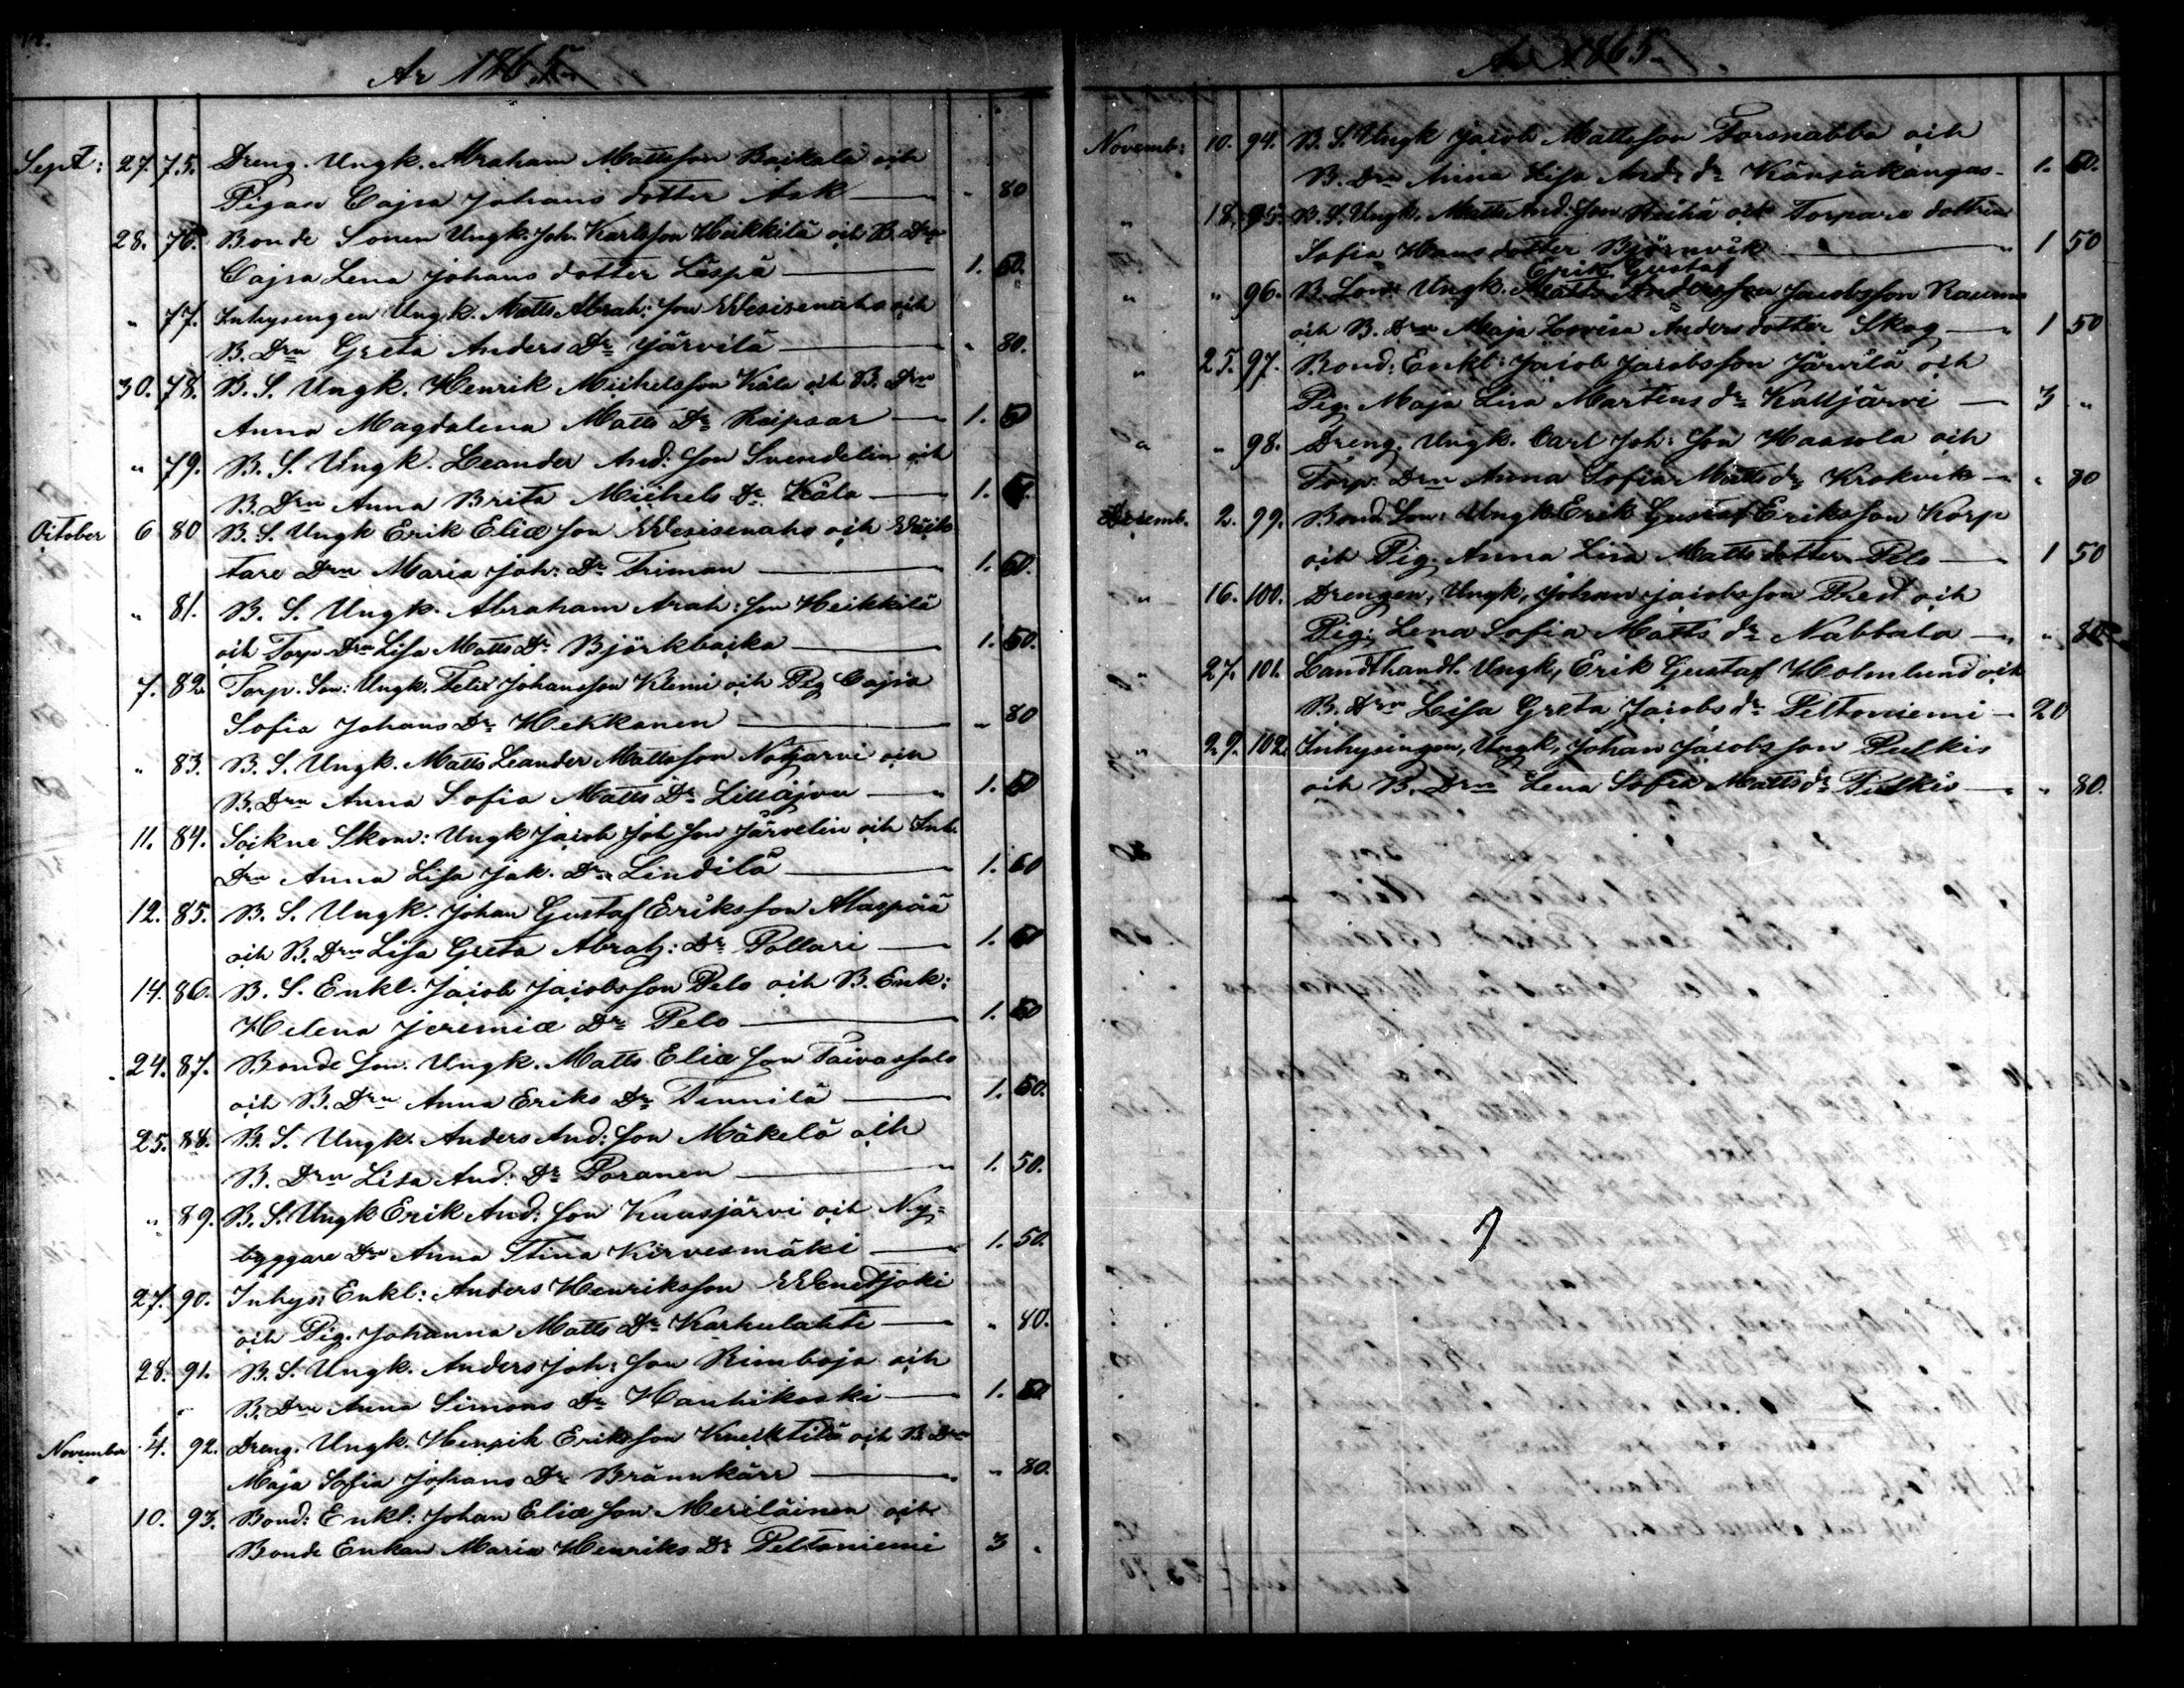 År 1865.
Sept: 27. 75. Dreng. Ungk. Abraham Mattsson Backala och
Pigan Cajsa Johans dotter Ask — " 80
28. 76. Bonde Sonen Ungk. Joh. Karlsson Heikkilä och B. Drn
Cajsa Lena Johans dotter Läspä — 1. 50.
" 77. Inhysingen Ungk. Matts Abrah: son Wesisenaho och
B. Drn Greta Anders Dr Järvilä — " 80.
30. 78. B. S. Ungk. Henrik Michelsson Kåla och B. Drn
Anna Magdalena Matts Dr Ripsar — 1. 50
" 79. B. S. Ungk. Leander And: son Svendelin och
B. Drn Anna Brita Michels Dr Kåla — 1. 50.
October 6 80 B. S. Ungk Erik Eliæ son Wesisenaho och
tare Drn Maria Joh: Dr Friman — 1. 50.
" 81. B. S. Ungk. Abraham Arah: son Heikkilä
och Torp Drn Lisa Matts Dr Björkbacka — 1. 50.
7. 82. Torp. Son: Ungk. Felix Johansson Klemi och Pig Cajsa
Sofia Johans Dr Hekkanen — " 80
" 83. B. S. Ungk. Matts Leander Mattsson Notjärvi och
B. Drn Anna Sofia Matts Dr — 1. 50
11. 84. Sockne Skom: Ungk Jacob Joh son Järvelin och Inh.
Drn Anna Lisa Jak. Dr Lindilä — 1. 60
12. 85. B. S. Ungk. Johan Gustaf Eriksson Alaspää
och B. Drn Lisa Greta Abrah: Dr Pollari — 1. 50
14. 86. B. S. Enkl. Jacob Jacobsson Pelo och B. Enk:
Helena Jeremiæ Dr Pelo — 1. 50
24. 87. Bonde Son. Ungk. Matts Eliæ son Taivassalo
och B. Drn Anna Eriks Dr Tinnilä — 1. 50.
25. 88. B. S. Ungk. Anders And: son Mäkelä och
B. Drn Lisa And: Dr Poranen — 1. 50.
" 89. B. S. Ungk Erik And: son Kuusjärvi och Ny=
byggare Drn Anna Stina Kirvesmäki — 1. 50.
27. 90. Inhys: Enkl: Anders Henriksson Wenetjoki
och Pig. Johanna Matts Dr Karhulahti — " 80.
28. 91. B. S. Ungk. Anders Joh: son Rimboja och
B. Drn Anna Simons Dr Hanhikoski — 1. 50
November 4. 92. Dreng. Ungk. Henrik Eriksson Knecktilä och B. Drn
" Maja Sofia Johans Dr Brännkärr — " 80.
10. 93. Bond: Enkl: Johan Eliæ son Meriläinen och
Bonde Enkan Maria Henriks Dr Peltoniemi 3 "
År 1865.
Novemb: 10. 94. B. S. Ungk Jacob Mattsson Forsnabba och
B. Drn Anna Lisa And: dr Känsäkangas 1. 50.
" 18. 95. B. S. Ungk. Matts And: Son Riihä och Torpare dottren
Sofia Hansdotter Björnvik — 1 50
Erik Gustaf
" " 96. B. Son: Ungk. Matts Andersson Jacobsson Raumo
och B. Drn Maja Lovisa Anders dotter Skog — 1 50
" 25. 97. Bond: Enkl: Jacob Jacobsson Järvilä och
Pig. Maja Lisa Martens dr Kattjärvi — 3 "
" " 98. Dreng. Ungk. Carl Joh: Son Haasola och
Torp. Drn Anna Sofia Matts dr Krokvik — " 80
Decemb. 2. 99. Bond. Son: Ungk Erik Gustaf Eriksson Korp
och Pig. Anna Lisa Matts dotter Pelo — 1 50
" 16. 100. Drengen, Ungk, Johan Jacobsson Pred och
Pig: Lena Sofia Matts dr Nabbala — " 80
" 27. 101. Landthandl. Ungk, Erik Gustaf Holmlund och
B. Drn Lisa Greta Jacobs dr Peltoniemi — 20
" 29. 102. Inhysingen, Ungk, Johan Jacobsson Pulkis
och B. Drn Lena Sofia Matts dr Pulkis — " 80.